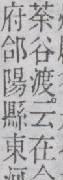 茶谷渡。云在
府郃陽縣東